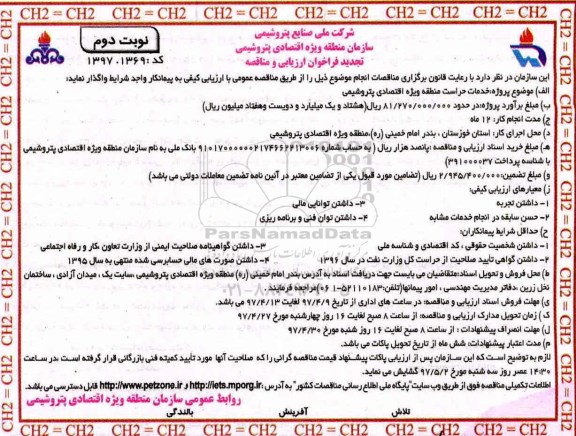 CH2 = CH2 = CH2 = CH2 = CH2 = CH2 = CH2 = CH2
شرکت ملی صنایع پتروشیمی
سازمان منطقه ویژه اقتصادی پتروشیمی
تجدید فراخوان ارزیابی و مناقصه
نوبت دوم
کد : ۱۳۶۹ . ۱۳۹۷
این سازمان در نظر دارد با رعایت قانون برگزاری مناقصات انجام موضوع ذیل را از طریق مناقصه عمومی با ارزیابی کیفی به پیمانکار واجد شرایط واگذار نماید:
الف) موضوع پروژه:خدمات حراست منطقه ویژه اقتصادی پتروشیمی
ب) مبلغ برآورد پروژه:در حدود ۸۱/۲۷۰/۰۰۰/۰۰۰ ریال(هشتاد و یک میلیارد و دویست وهفتاد میلیون ریال)
ج) مدت انجام کار: ۱۲ ماه
د) محل اجرای کار: استان خوزستان ، بندر امام خمینی (ره)،منطقه ویژه اقتصادی پتروشیمی
هـ) مبلغ خرید اسناد ارزیابی و مناقصه :پانصد هزار ریال ( به حساب شماره ۹۱۰۱۷۰۰۰۰۰۰۲۱۷۴۶۶۲۴۱۳۰۰۶ بانک ملی به نام سازمان منطقه ویژه اقتصادی پتروشیمی
با شناسه پرداخت ۳۹۱۰۰۰۰۳۷)
و) مبلغ تضمین:۲/۹۴۵/۴۰۰/۰۰۰ ریال (تضامین مورد قبول یکی از تضامین معتبر در آئین نامه تضمین معاملات دولتی می باشد)
ز) معیارهای ارزیابی کیفی:
۱- داشتن تجربه
۳- داشتن توانایی مالی
۲- حسن سابقه در انجام خدمات مشابه
۴- داشتن توان فنی و برنامه ریزی
ح) حداقل شرایط پیمانکاران:
۱- داشتن شخصیت حقوقی ، کد اقتصادی و شناسه ملی
۳- داشتن گواهینامه صلاحیت ایمنی از وزارت تعاون ،کار و رفاه اجتماعی
۲- داشتن گواهی تأیید صلاحیت از حراست کل وزارت نفت در سال ۱۳۹۶
۴- داشتن صورت های مالی حسابرسی شده منتهی به سال ۱۳۹۵
ط) محل فروش و تحویل اسناد:متقاضیان می بایست جهت دریافت اسناد به آدرس بندر امام خمینی (ره) منطقه ویژه اقتصادی پتروشیمی ،سایت یک ، میدان آزادی ، ساختمان
نخل زرین ،دفاتر مدیریت مهندسی ، امور پیمانها(تلفن:۵۲۱۱۰۱۸۳-۰۶۱)مراجعه فرمایند.
ی) مهلت فروش اسناد ارزیابی و مناقصه: در ساعت های اداری از تاریخ ۹۷/۴/۹ لغایت ۹۷/۴/۱۳ می باشد.
ک ) زمان تحویل مدارک ارزیابی و مناقصه: از ساعت ۸ صبح لغایت ۱۶ روز چهارشنبه مورخ ۹۷/۴/۲۷
ل) مهلت انصراف پیشنهادات : از ساعت ۸ صبح لغایت ۱۶ روز شنبه مورخ ۹۷/۴/۳۰
م) مدت اعتبار پیشنهادات: شش ماه از تاریخ تحویل پاکات می باشد.
لازم به توضیح است که این سازمان پس از ارزیابی پاکات پیشنهاد قیمت مناقصه گرانی را که صلاحیت آنها مورد تأیید کمیته فنی بازرگانی قرار گرفته است ،در ساعت
۱۴:۳۰ عصر روز سه شنبه مورخ ۹۷/۵/۲ گشایش می نماید.
اطلاعات تکمیلی مناقصه فوق از طریق وب سایت"پایگاه ملی اطلاع رسانی مناقصات کشور" به آدرس :http://iets.mporg.ir و http://www.petzone.ir قابل دسترسی می باشد.
روابط عمومی سازمان منطقه ویژه اقتصادی پتروشیمی
تلاش آفرینش بالندگی
CH2 = CH2 = CH2 = CH2 = CH2 = CH2 = CH2 = CH2